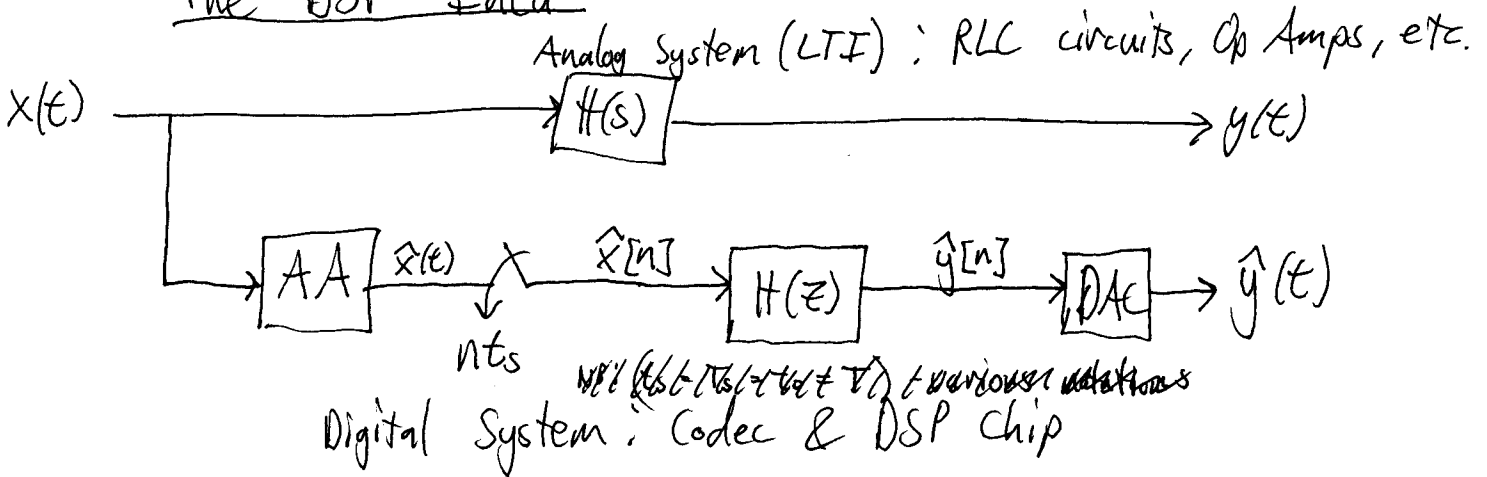 The DSP Idea
Analog System (LTI) : RLC circuits, Op Amps, etc.
x(t) H(s) y(t)
AA x̂(t) x̂[n] H(z) ŷ[n] DAC ŷ(t)
nts
Digital System : Codec & DSP Chip